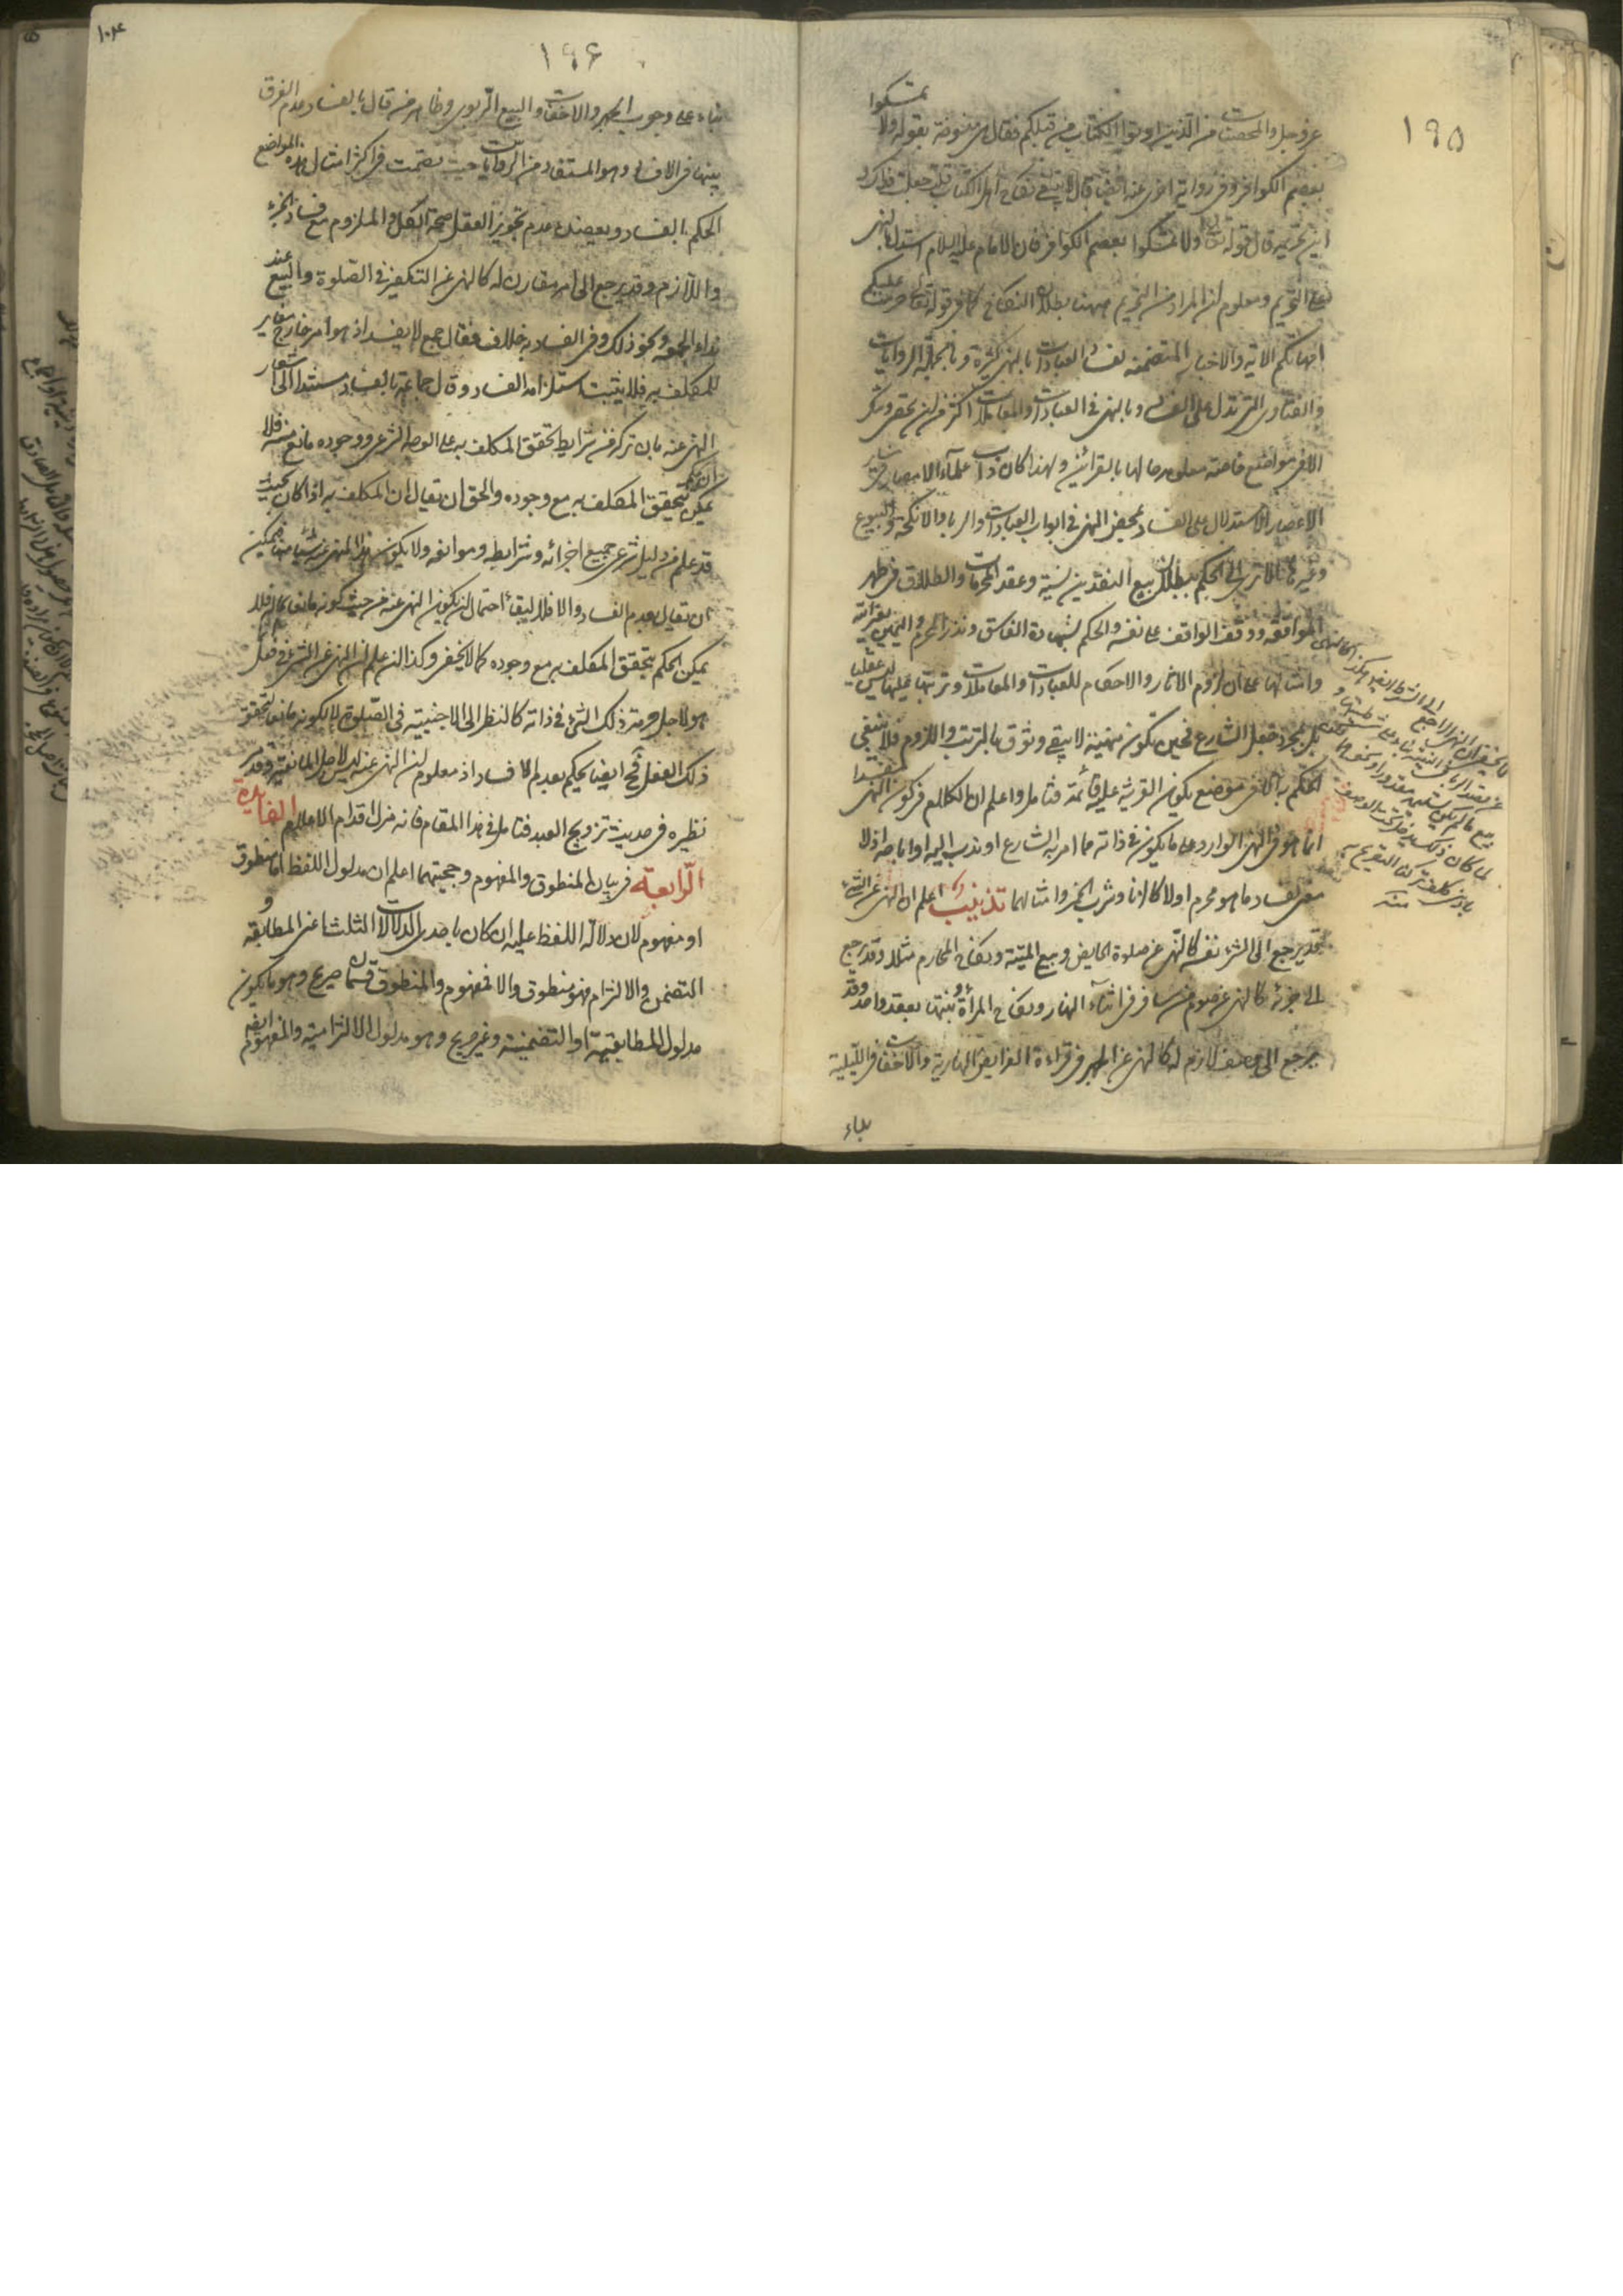 ١٩٥
عز وجل والمحصنات من الذين اوتوا الكتاب من قبلكم فقال هي منسوخة بقوله ولا تمسكوا
بعصم الكوافر وفي رواية اخرى عنه ايضا قال لا ينبغي نكاح اهل الكتاب قلت جعلت فداك و
اين تحريمه قال قوله تعالى ولا تمسكوا بعصم الكوافر فان الامام عليه السلام استدل بالنهي
على التحريم ومعلوم ان المراد من التحريم ههنا بطلان النكاح كما في قوله تعالى حرمت عليكم
امهاتكم الاية والاخبار المتضمنة لفساد العبادات بالنهي كثيرة وبالجملة الروايات
والفتاوى التي تدل على الفساد بالنهي في العبادات والمعاملات اكثر من ان يحصى وينكر
الا في مواضع خاصة معلومة حالها بالقرائن ولهذا كان داب علماء الامصار في ساير
الاعصار الاستدلال على الفساد بمحض النهي في ابواب العبادات والربا والانكحة والبيوع
وغيرها الا ترى الى الحكم ببطلان بيع النقدين نسية وعقد المحرمات والطلاق في طهر
المواقعة ووقف الواقف على نفسه والحكم بشهادة الفاسق ونذر المحرم واليمين
وامثالها على ان لزوم الاثار والاحكام للعبادات والمعاملات وترتبها عليها ليس عقليا
بل بمجرد جعل الشارع فحين يكون منهية لا يبقى وثوق بالترتب واللزوم فلا ينبغي
الحكم به الا في موضع يكون القرينة عليه قائمة فتامل واعلم ان الكلام في كون النهي مفسدا
انما هو في النهي الوارد على ما يكون في ذاته مما امر به الشارع او ندب اليه او اباحه اذ لا
معنى لفساد ما هو محرم اولا كالزنا وشرب الخمر وامثالهما تذنيب اعلم ان النهي عن الشيء
قد يرجع الى الشيء نفسه كالنهي عن صلوة الحايض وبيع الميتة ونكاح المحارم مثلا وقد يرجع
الى جزئه كالنهي عن صوم من سافر في اثناء النهار ونكاح المرأة وبنتها بعقد واحد وقد
يرجع الى وصف لازم له كالنهي عن الجهر في قراءة الفرايض النهارية والاخفات في الليلية
بناء
١٩۶
١٠۴
بناء على وجوب الجهر والاخفات والبيع الربوي وظاهر من قال بالفساد عدم الفرق
بينها في الافساد وهو المستفاد من الروايات حيث تضمنت في اكثر امثال هذه المواضع
الحكم بالفساد ويعضده عدم تجويز العقل صحة الكل والملزوم مع فساد الجزء
واللازم وقد يرجع الى امر مقارن له كالنهي عن التكفير في الصلوة والبيع عند
نداء الجمعة ونحو ذلك وفي الفساد به خلاف فقال جمع لا يفسد اذ هو امر خارج مغاير
للمكلف به فلا يثبت استلزامه الفساد وقال جماعة بالفساد مستندا الى اشعار
النهي عنه بان تركه من شرايط تحقق المكلف به على الوجه الشرعي ووجوده مانع منه فلا
يمكن تحقق المكلف به مع وجوده والحق ان يقال ان المكلف به اذا كان بحيث
قد علم من دليل شرعي جميع اجزائه وشرايطه وموانعه ولا يكون هذا المنهي عنه شيئا منها فيمكن
ان يقال بعدم الفساد والا فلا لبقاء احتمال ان يكون النهي عنه من حيث كونه مانعا فلا
يمكن الحكم بتحقق المكلف به مع وجوده كما لا يخفى وكذا ان علم ان النهي عن الشيء في فعل
هو لاجل حرمة ذلك الشيء في ذاته كالنظر الى الاجنبية في الصلوة لا لكونه مانعا لتحقق
ذلك الفعل فح ايضا يحكم بعدم الافساد اذ معلوم ان النهي عنه ليس لاجل المانعية وقد مر
نظيره في حديث تزويج العبد فتامل في هذا المقام فانه مزل اقدام الاعلام الفايدة
الرابعة في بيان المنطوق والمفهوم وحجيتهما اعلم ان مدلول اللفظ اما منطوق
او مفهوم لان دلالة اللفظ عليه ان كان باحدى الدلالات الثلث اعني المطابقة و
التضمن والالتزام فهو منطوق والا فمفهوم والمنطوق قسمان صريح وهو ما يكون
مدلول المطابقية او التضمنية وغير صريح وهو مدلول الالتزامية والمفهوم ايضا